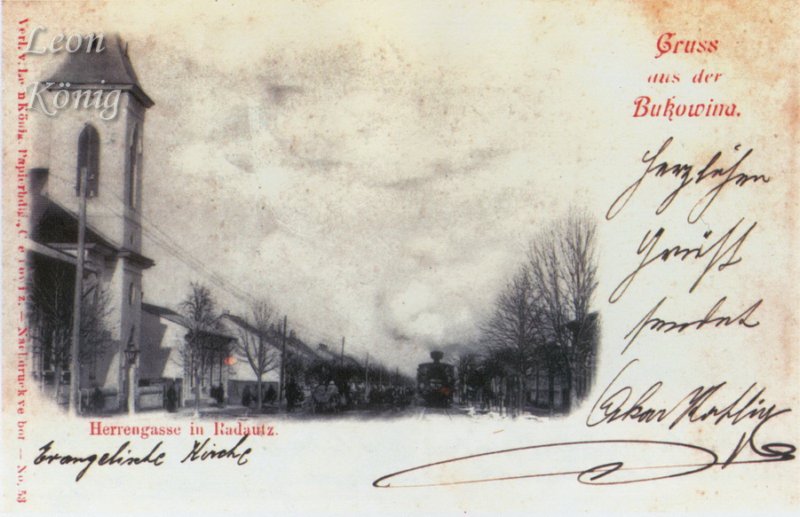 Leon
König
Gruss
aus der
Bukowina.
Herzlichen
Grüßt
sendet
Oskar
Herrengasse in Radautz.
Evangelische Kirche
Verl. v. Leon König, Papierhdlg., Czernowitz. — Nachdruck verbot — No. 53